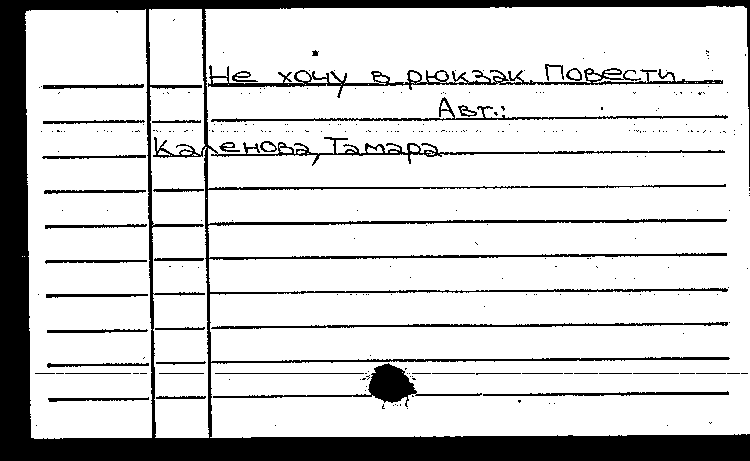 Не хочу в рюкзак. Повести.
Авт.:
Каленова, Тамара